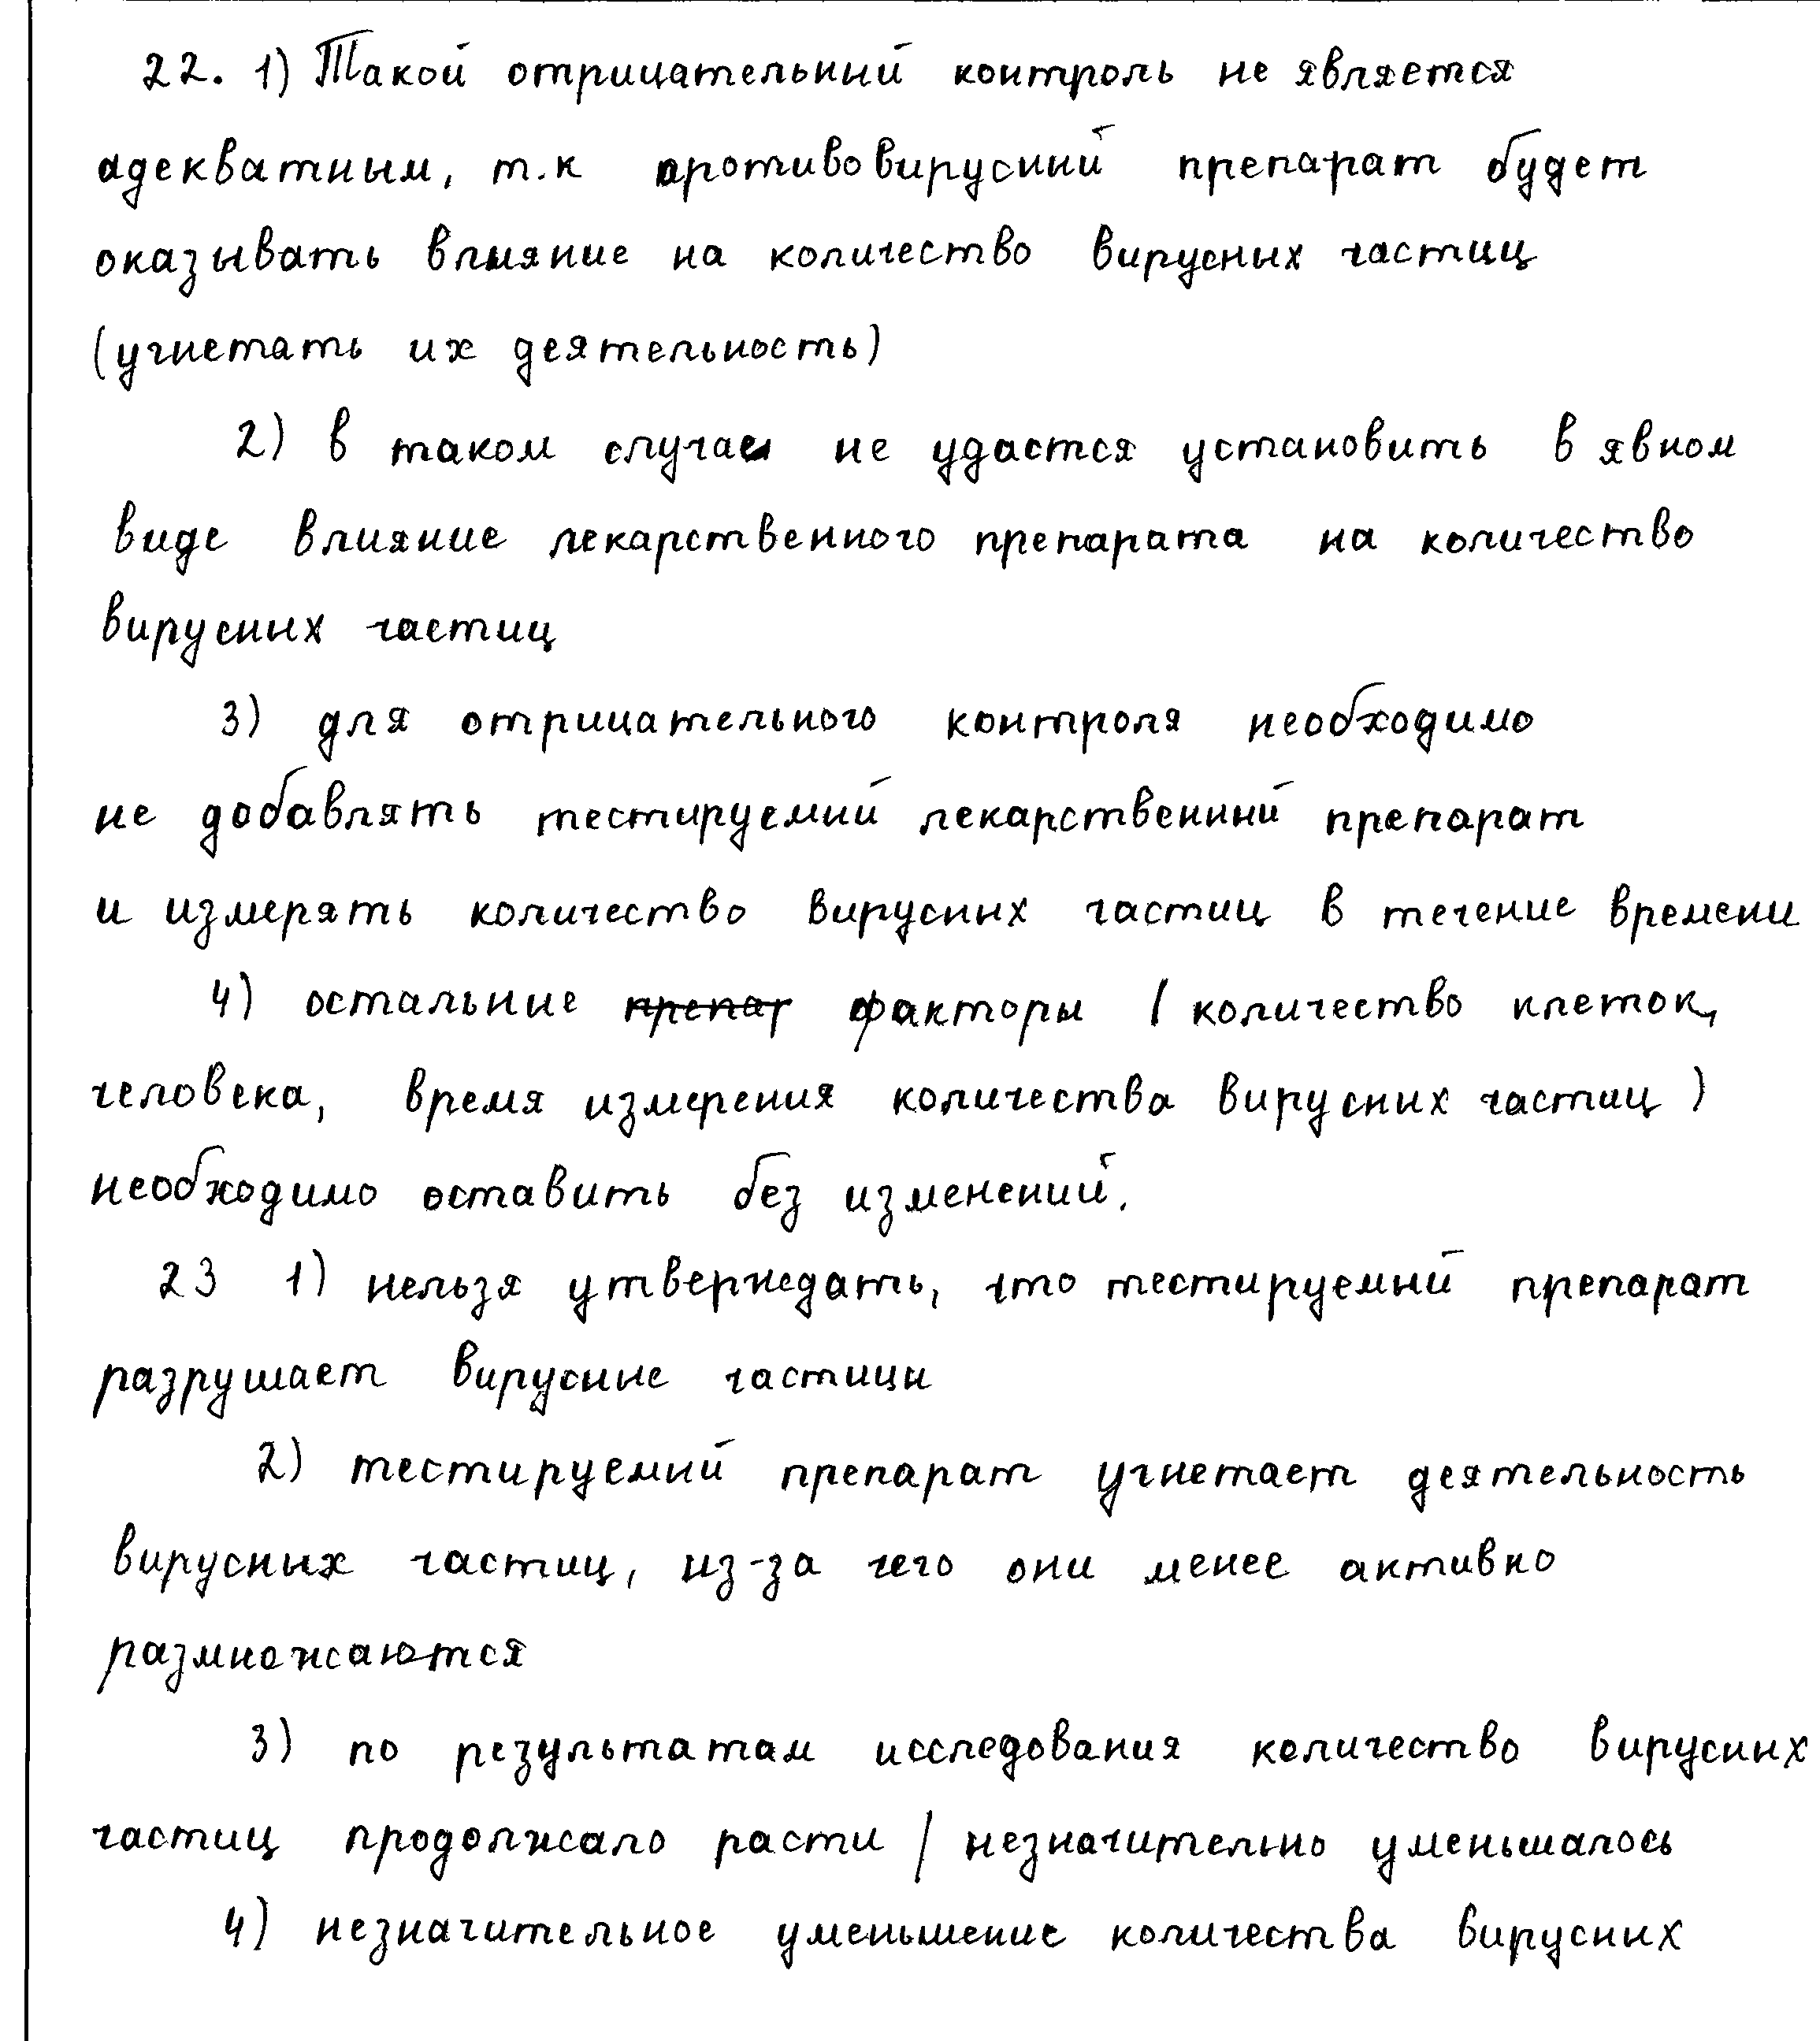 22. 1) Такой отрицательный контроль не является
адекватным, т.к противовирусный препарат будет
оказывать влияние на количество вирусных частиц
(угнетать их деятельность)
2) в таком случае не удастся установить в явном
виде влияние лекарственного препарата на количество
вирусных частиц
3) для отрицательного контроля необходимо
не добавлять тестируемый лекарственный препарат
и измерять количество вирусных частиц в течение времени
4) остальные препар факторы (количество клеток,
человека, время измерения количества вирусных частиц)
необходимо оставить без изменений.
23 1) нельзя утверждать, что тестируемый препарат
разрушает вирусные частицы
2) тестируемый препарат угнетает деятельность
вирусных частиц, из-за чего они менее активно
размножаются
3) по результатам исследования количество вирусных
частиц продолжало расти / незначительно уменьшалось
4) незначительное уменьшение количества вирусных